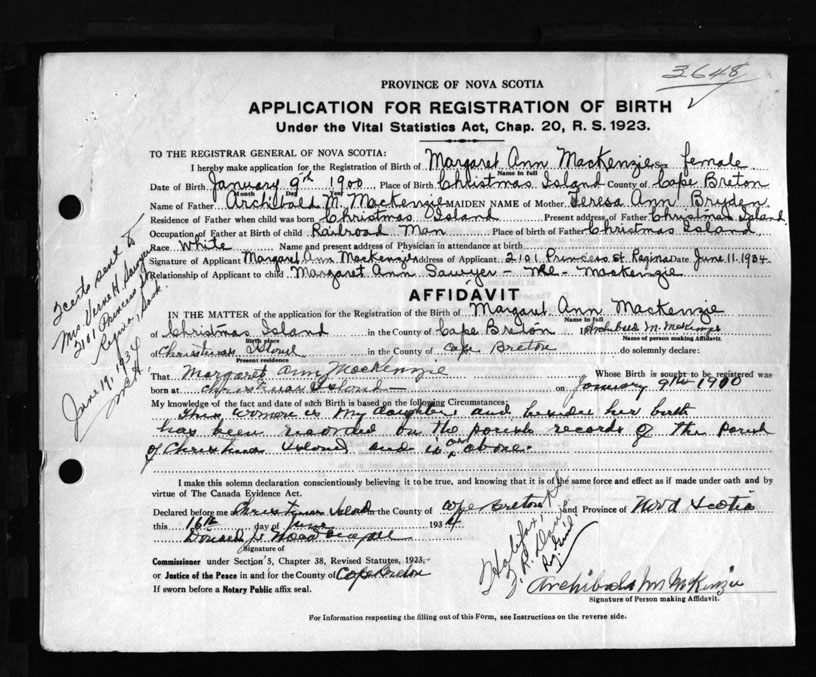 3648
PROVINCE OF NOVA SCOTIA
APPLICATION FOR REGISTRATION OF BIRTH
Under the Vital Statistics Act, Chap. 20, R. S. 1923.
TO THE REGISTRAR GENERAL OF NOVA SCOTIA:
I hereby make application for the Registration of Birth of Margaret Ann MacKenzie Sex female
Name in full
Date of Birth January 9th 1900 Place of Birth Christmas Island County of Cape Breton
Month Day Year
Name of Father Archibald M. Mackenzie MAIDEN NAME of Mother Teresa Ann Bryden
Residence of Father when child was born Christmas Island Present address of Father Christmas Island
Occupation of Father at Birth of child Railroad Man Place of birth of Father Christmas Island
Race White Name and present address of Physician in attendance at birth
Signature of Applicant Margaret Ann MacKenzie Address of Applicant 2101 Princess St Regina Date June 11. 1934
Relationship of Applicant to child Margaret Ann Sawyer - née - Mackenzie
2 certs sent to
Mrs. Verne H. Sawyer
2101 Princess St
Regina, Sask.
June 19, 1934
AFFIDAVIT
IN THE MATTER of the application for the Registration of the Birth of Margaret Ann MacKenzie
Name in full
of Christmas Island in the County of Cape Breton I Archibald M. McKenzie
Birth place Name of person making Affidavit
of Christmas Island in the County of Cape Breton do solemnly declare:
Present residence
That Margaret Ann MacKenzie Whose Birth is sought to be registered was
born at Christmas Island on January 9th 1900
My knowledge of the fact and date of such Birth is based on the following Circumstances:
This woman is my daughter, and besides her birth
has been recorded on the parish records of the Parish
of Christmas Island and is as above.
I make this solemn declaration conscientiously believing it to be true, and knowing that it is of the same force and effect as if made under oath and by
virtue of The Canada Evidence Act.
Declared before me Christmas Island in the County of Cape Breton and Province of Nova Scotia
this 16th day of June 1934
Donald J.
Signature of
Commissioner under Section 5, Chapter 38, Revised Statutes, 1923,
or Justice of the Peace in and for the County of Cape Breton
If sworn before a Notary Public affix seal.
Halifax,
Archibald M McKenzie
Signature of Person making Affidavit.
For Information respecting the filling out of this Form, see Instructions on the reverse side.